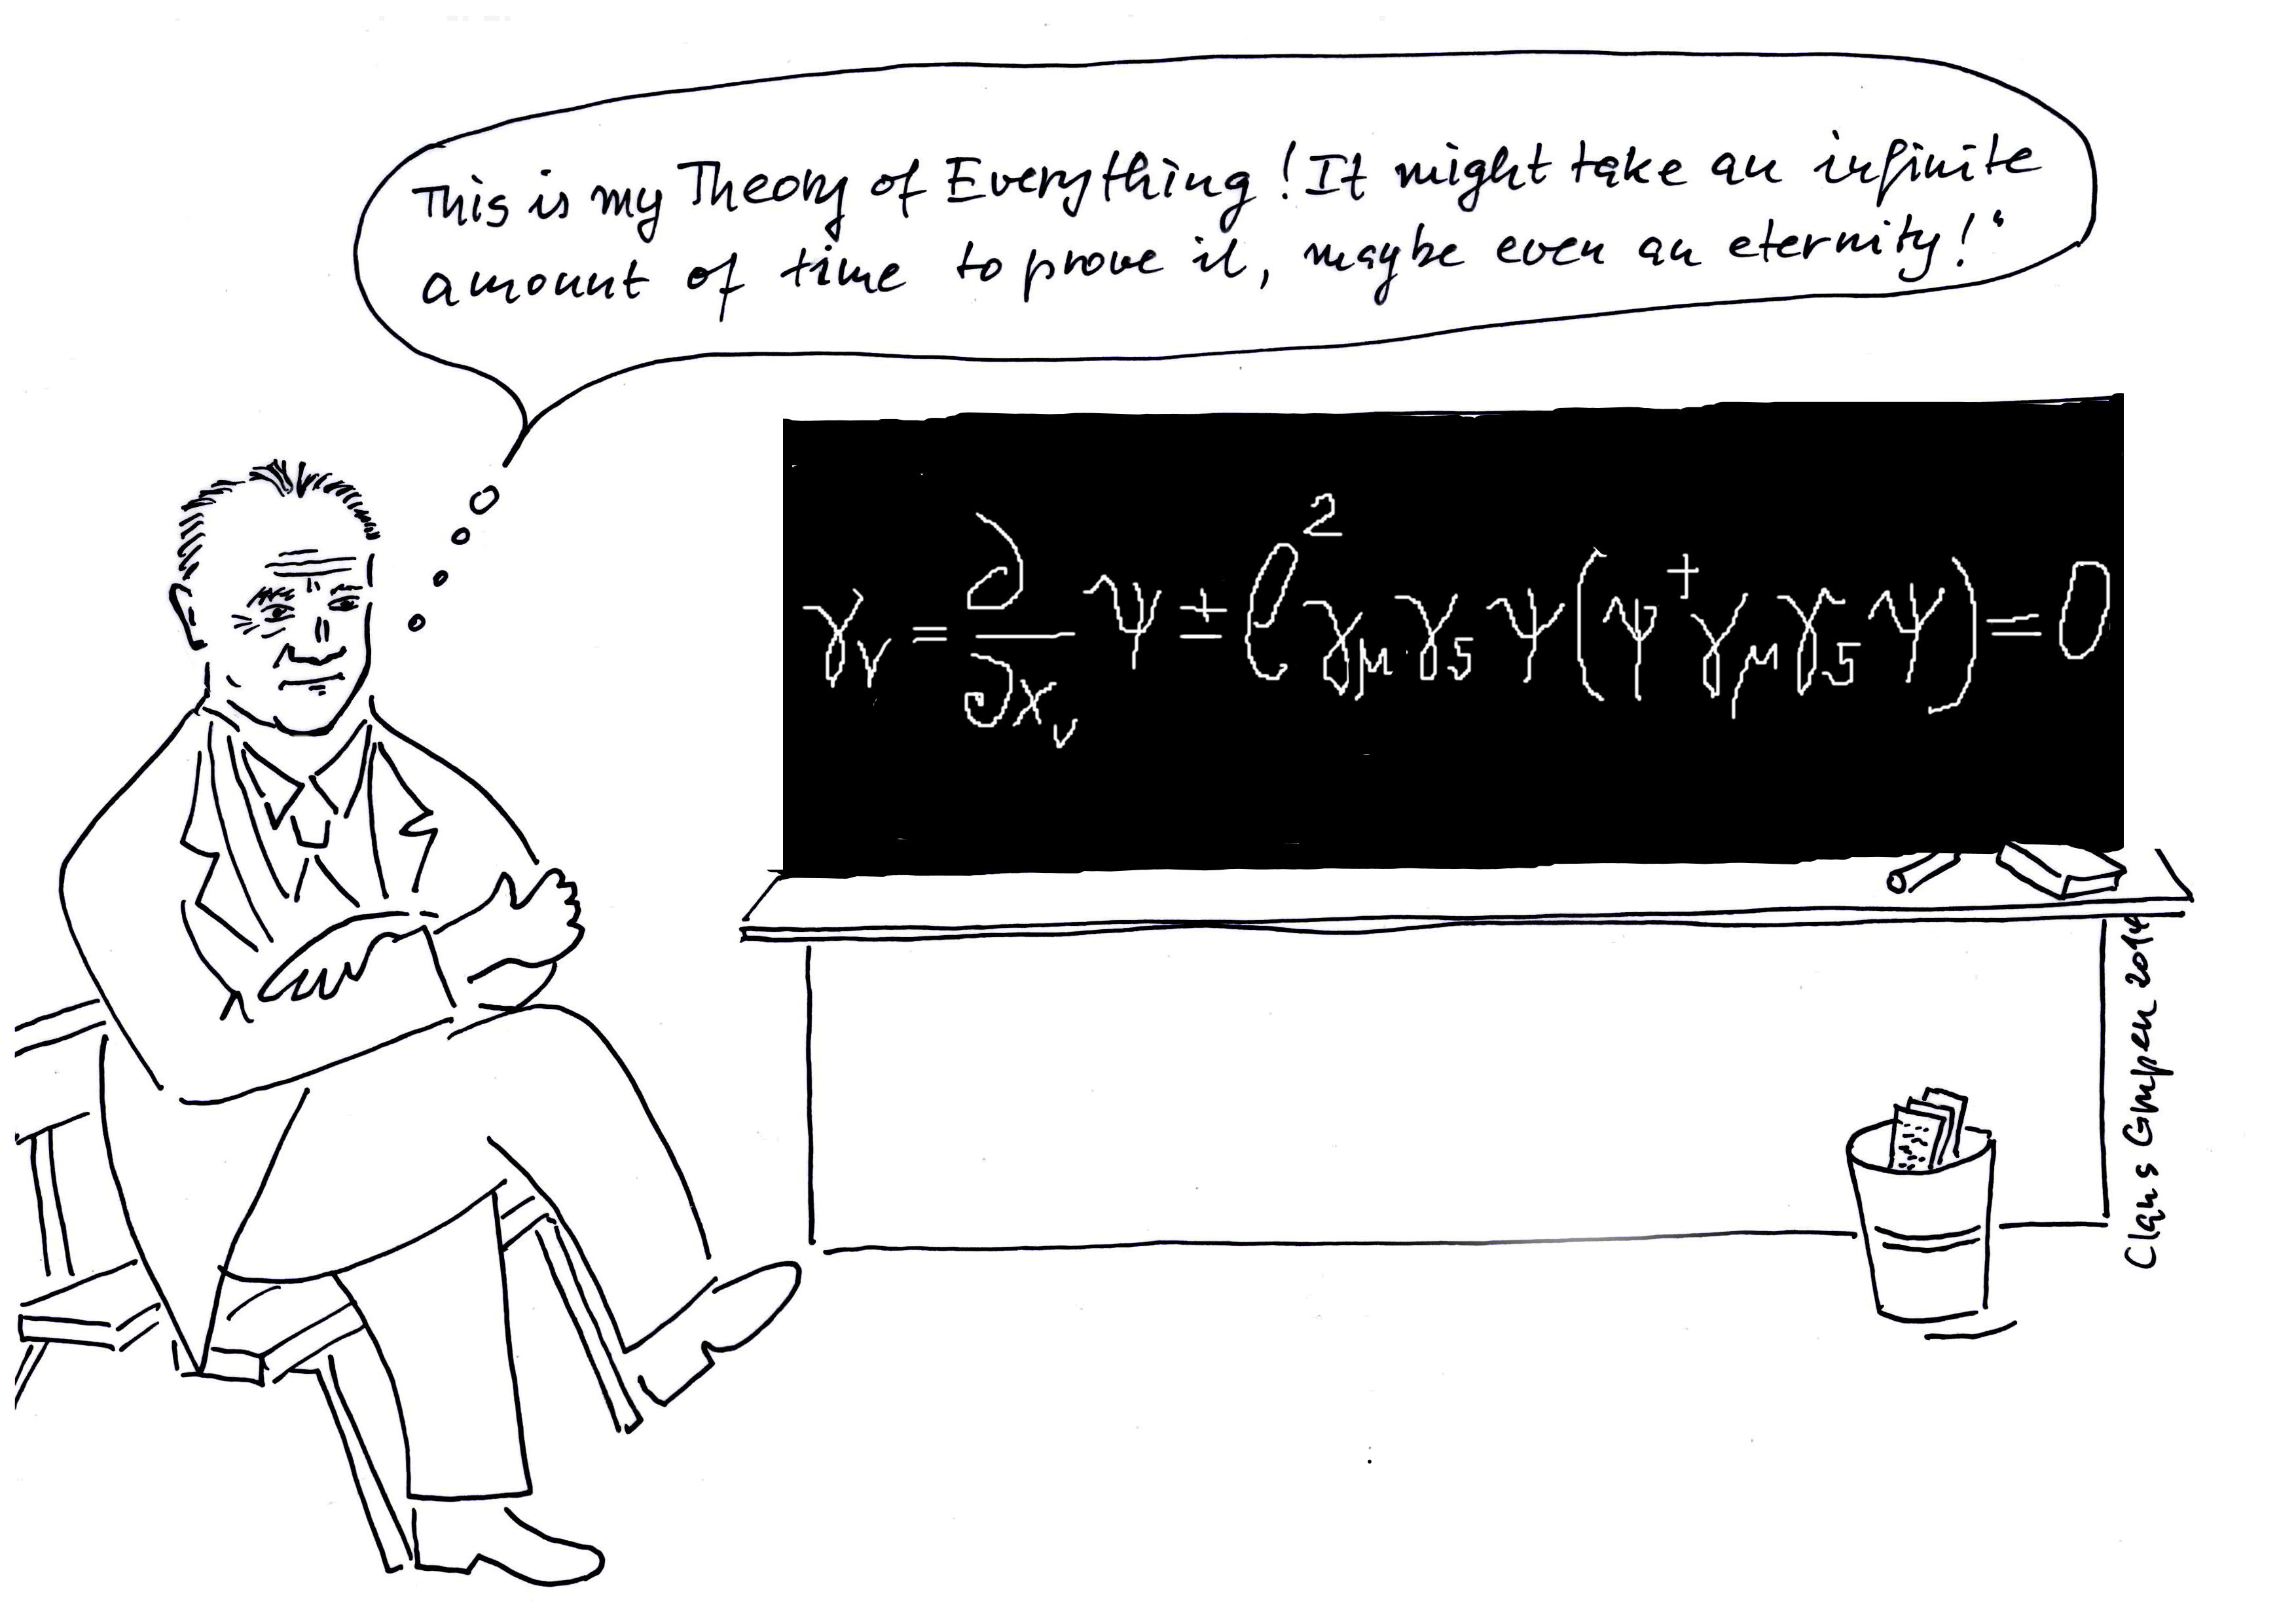 This is my Theory of Everything! It might take an infinite
amount of time to prove it, maybe even an eternity!"
γν = ∂/∂xν ψ ± l² γμ γ5 ψ(ψ† γμ γ5 ψ) = 0
Claus Grupen 2014